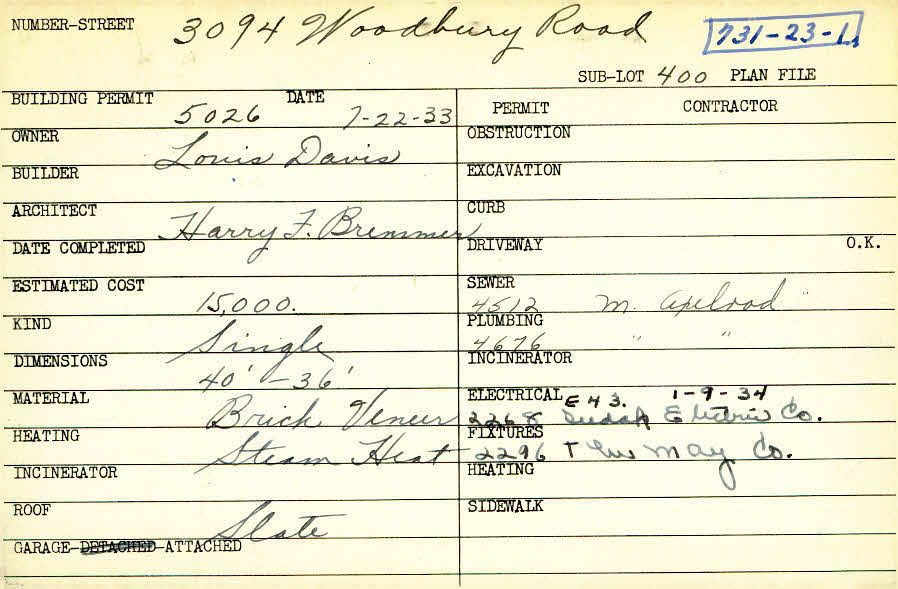 NUMBER-STREET 3094 Woodbury Road 731-23-1
SUB-LOT 400 PLAN FILE
BUILDING PERMIT 5026 DATE 7-22-33
OWNER Louis Davis
BUILDER
ARCHITECT Harry F. Bremmer
DATE COMPLETED
ESTIMATED COST 15,000.
KIND Single
DIMENSIONS 40' - 36'
MATERIAL Brick Veneer
HEATING Steam Heat
INCINERATOR
ROOF Slate
GARAGE-DETACHED-ATTACHED
PERMIT CONTRACTOR
OBSTRUCTION
EXCAVATION
CURB
DRIVEWAY O.K.
SEWER 4512 M. Axelrod "
PLUMBING 4676 " "
INCINERATOR
ELECTRICAL E 43. 1-9-34
2268 Electric Co.
FIXTURES
2296 The May Co.
HEATING
SIDEWALK